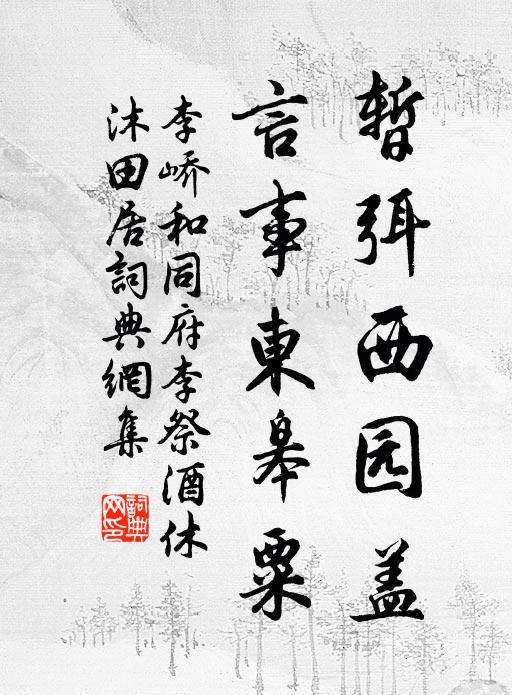 暂弭西园盖
言事東皋粟
李峤和同府李祭酒休
沐田居詞典網集
詞典网印